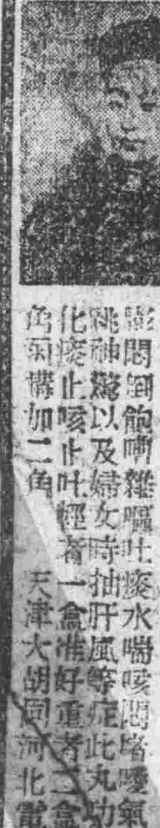 膨悶倒飽嘈雜嘔吐痰水喘咳悶堵噯氣
跳神驚以及婦女時抽肝風等症此丸功
化痰止咳止吐輕者一盒准好重者二盒
角函購加二角　天津大胡同河北電